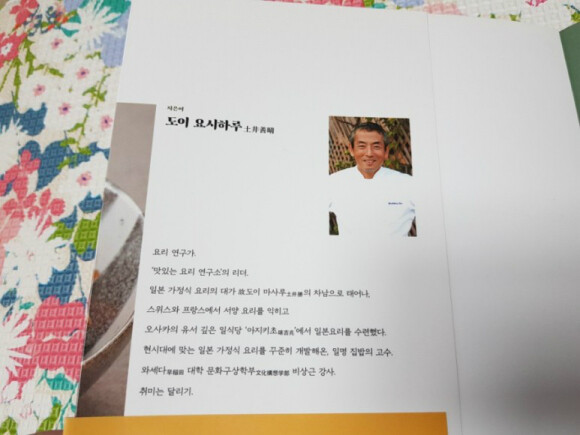 지은이
도이 요시하루 土井善晴
요리 연구가.
'맛있는 요리 연구소'의 리더.
일본 가정식 요리의 대가 故도이 마사루土井勝의 차남으로 태어나,
스위스와 프랑스에서 서양 요리를 익히고
오사카의 유서 깊은 일식당 '아지키초味吉兆'에서 일본요리를 수련했다.
현시대에 맞는 일본 가정식 요리를 꾸준히 개발해온, 일명 집밥의 고수.
와세다早稲田 대학 문화구상학부文化構想学部 비상근 강사.
취미는 달리기.